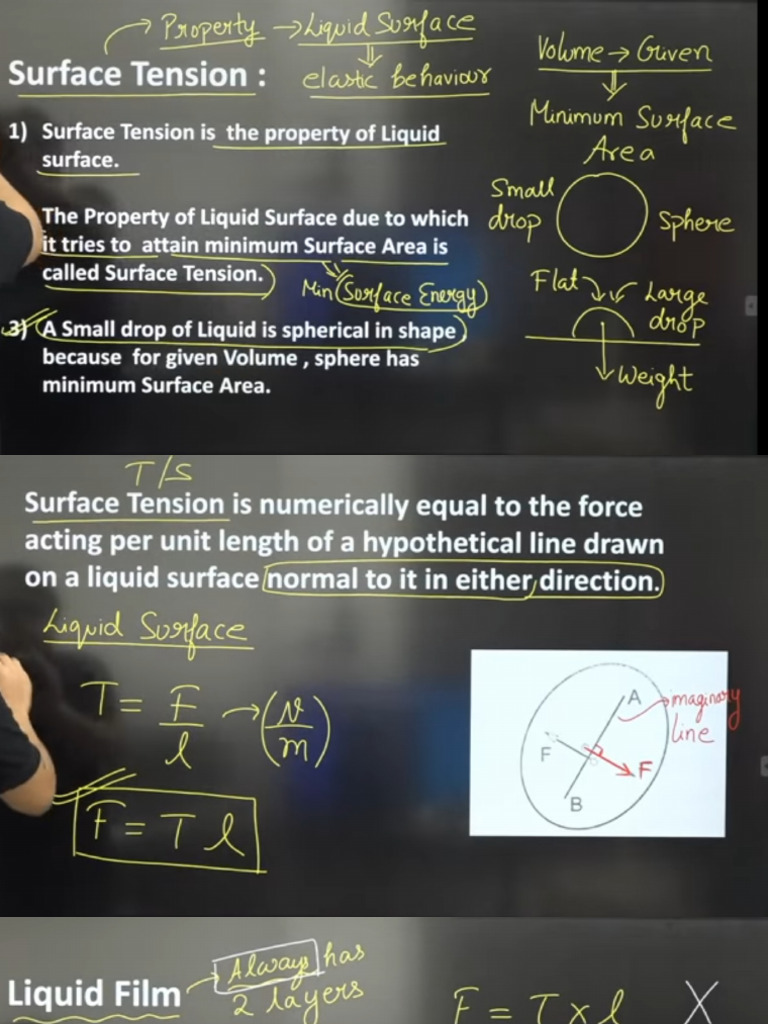 Property → Liquid Surface
Surface Tension :
elastic behaviour
1) Surface Tension is the property of Liquid
surface.
The Property of Liquid Surface due to which
it tries to attain minimum Surface Area is
called Surface Tension.
Min (Surface Energy)
3) A Small drop of Liquid is spherical in shape
because for given Volume , sphere has
minimum Surface Area.
Volume → Given
Minimum Surface
Area
Small
drop
Sphere
Flat
Large
drop
Weight
T/S
Surface Tension is numerically equal to the force
acting per unit length of a hypothetical line drawn
on a liquid surface normal to it in either direction.
Liquid Surface
T = F/l → (N/m)
F = T l
A
imaginary
line
F
F
B
Liquid Film → Always has
2 layers
F = T x l X